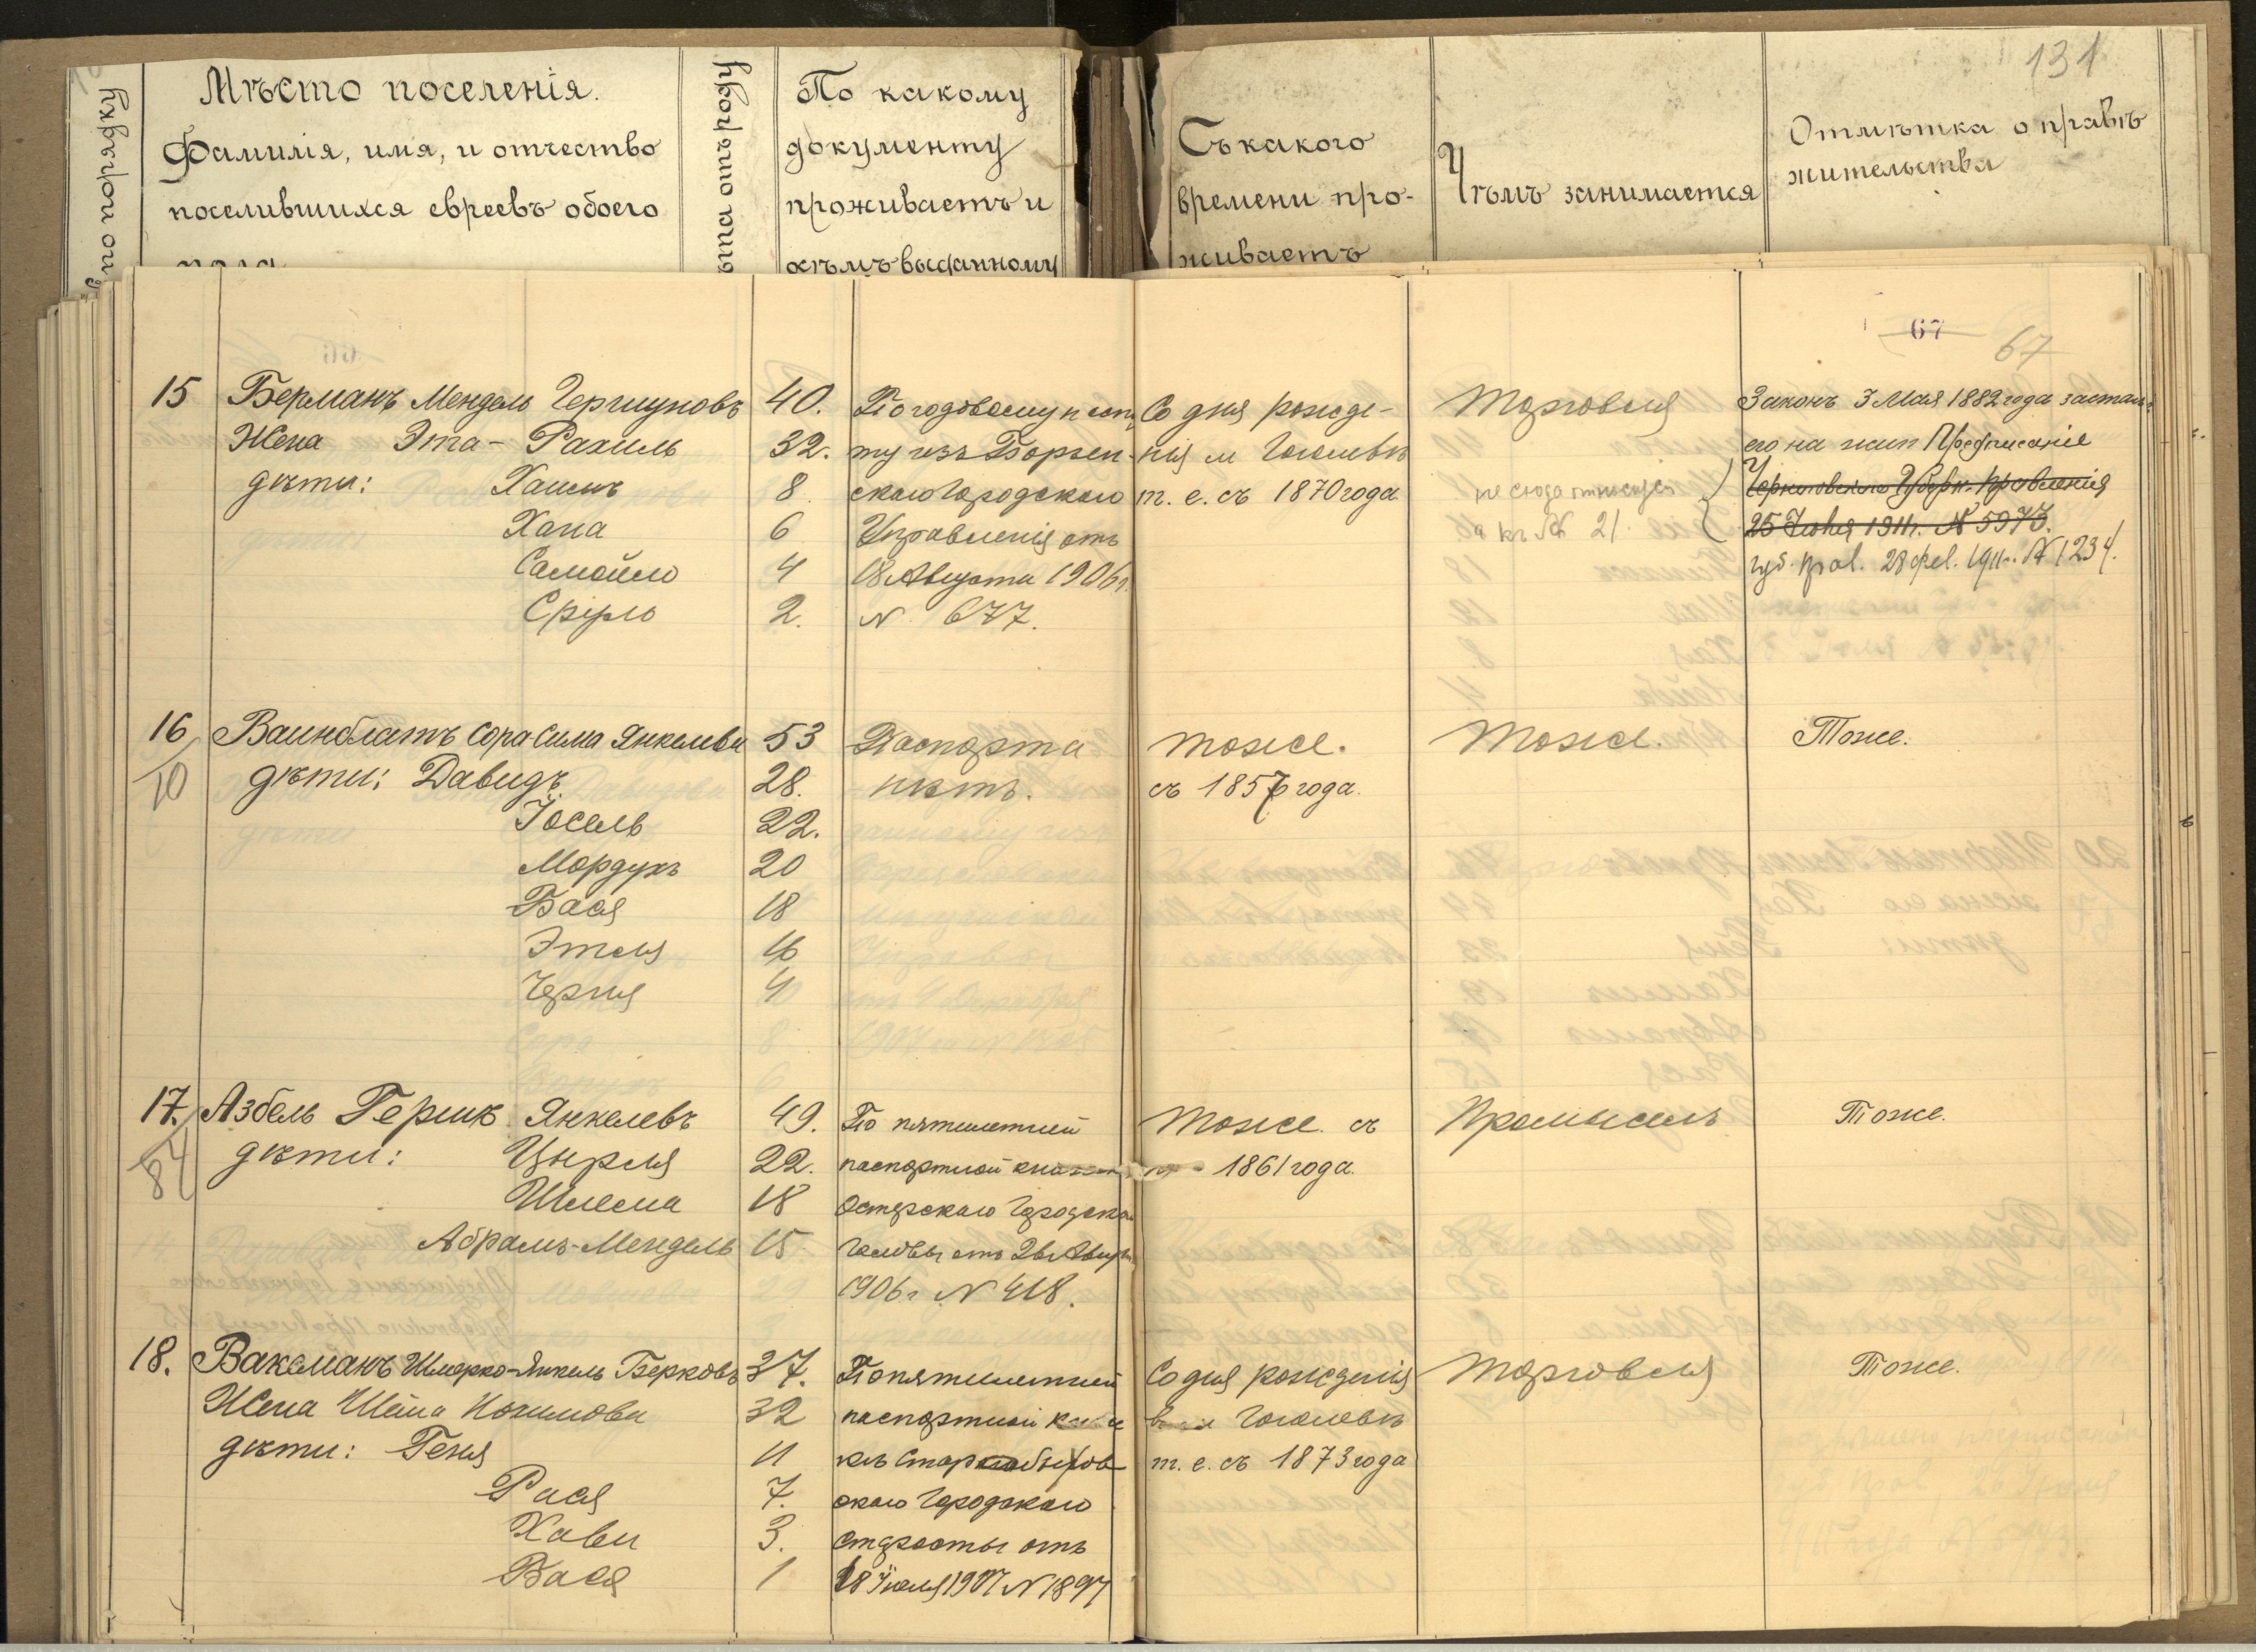 131
№ по порядку
Мѣсто поселенія.
Фамилія, имя, и отчество
поселившихся евреевъ обоего
пола
отъ роду
По какому
документу
проживаетъ и
кѣмъ выданному
Съ какого
времени про-
живаетъ
Чѣмъ занимается
Отмѣтка о правѣ
жительства
67
67
15 Берманъ Мендель Гершуновъ 40.
Жена Эта-Рахиль 32.
дѣти: Хаимъ 8
Хана 6
Самойло 4
Сруль 2.
По годовому паспор
ту изъ Борзен-
скаго Городского
Управленія отъ
18 Августа 1906 г.
N 677.
Со дня рожде-
нія м Гоголевѣ
т. е. съ 1870 года
Торговля
не сюда относится
а къ № 21.
Законъ 3 Мая 1882 года застал
его на жит Предписаніе
Черниговскаго Губерн. Правленія
25 Июня 1911 г. № 5973.
губ. прав. 28 фев. 1911 г. № 1234.
16 Вайнблатъ Сора Сима Янкелева 53
10
дѣти: Давидъ 28.
Іосель 22.
Мордухъ 20
Бася 18
Этля 16
Черня 4
Паспорта
нѣтъ.
тоже.
съ 1857 года.
тоже.
Тоже.
17. Азбель Гершк Янкелевъ 49.
84
дѣти: Цырля 22.
Шлема 18
Абрамъ-Мендель 15.
По пятилетней
паспортной книж
Остерскаго Городско
Головы отъ 26 Август
1906 г N 418.
Тоже. съ
1861 года.
Промыселъ
Тоже.
18. Ваксманъ Шмерко-Янкель Берковъ 37.
Жена Шейна Нохимова 32
дѣти: Геня 11
Рася 7.
Хава 3.
Бася 1
По пятилетней
паспортной кни
къ Старобыхов
скаго Городского
старосты отъ
18 Іюля 1907 N 1897
Со дня рожденія
Гоголевѣ
т. е. съ 1873 года
Торговля
Тоже.